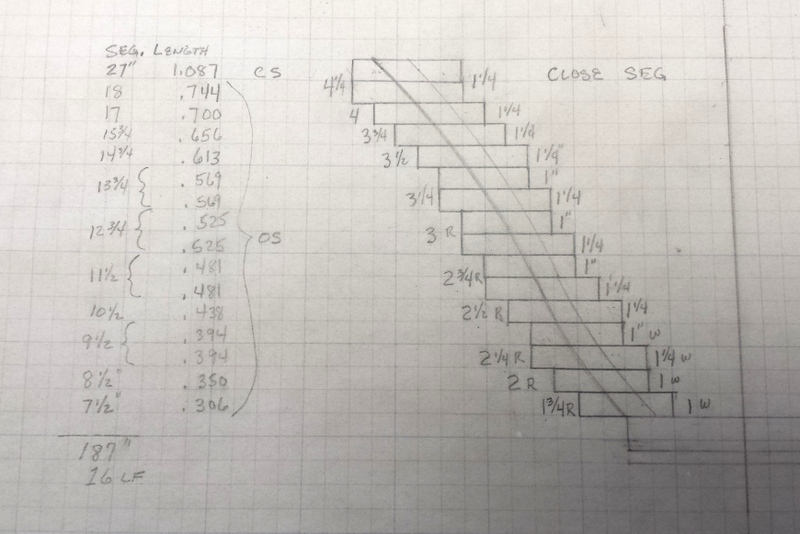 SEG. LENGTH
27" 1.087 CS
18 .744
17 .700
15 3/4 .656
14 3/4 .613
13 3/4 { .569
.569
12 3/4 { .525
.525
OS
11 1/2 { .481
.481
10 1/2 .438
9 1/2 { .394
.394
8 1/2" .350
7 1/2" .306
187"
16 LF
CLOSE SEG
4 1/4 1 1/4
4 1 1/4
3 3/4 1 1/4
3 1/2 1 1/4"
1"
3 1/4 1 1/4
1"
3 R 1 1/4
1"
2 3/4 R 1 1/4
2 1/2 R 1 1/4
1" W
2 1/4 R 1 1/4 W
2 R 1 W
1 3/4 R 1 W